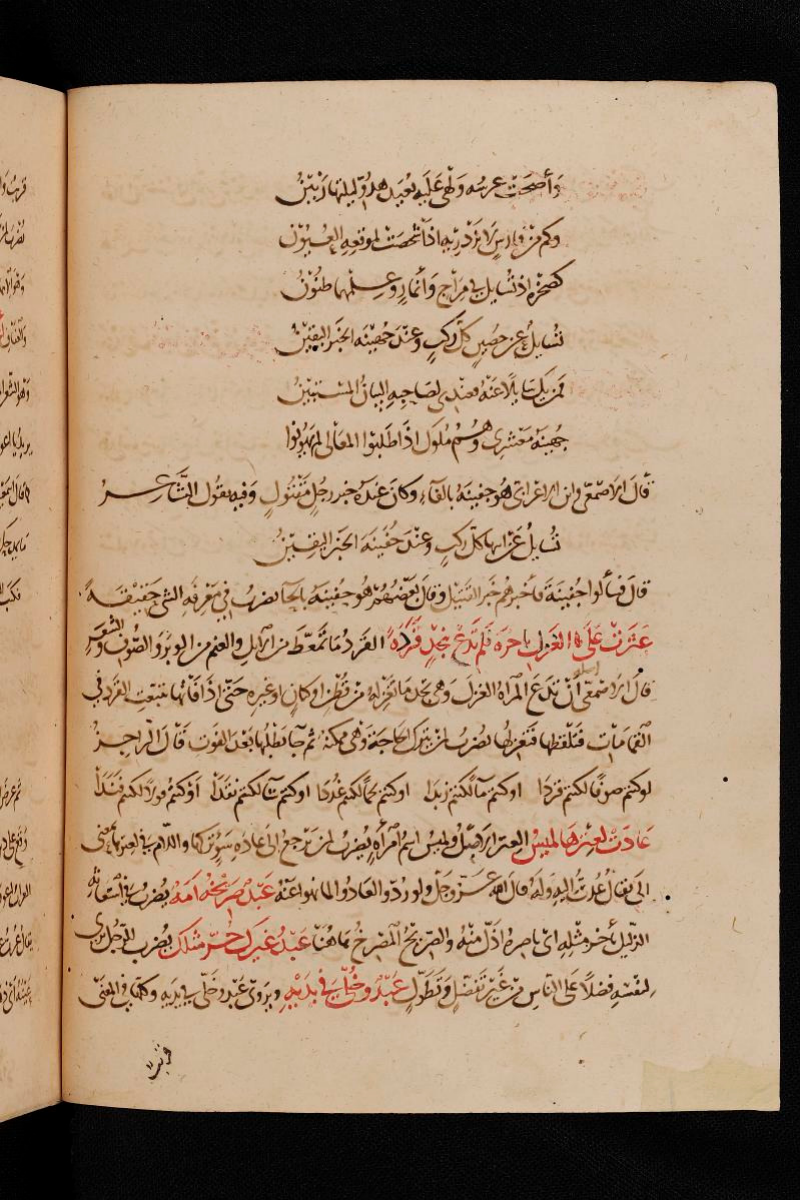 وَأَضحَتْ عرسه وَلَهَى عَلَيهِ بُعَيد هدوٍّ ليلتها رَنينُ
وكم من فارس لا تزدريه اذا شخصَت لموقعه العُيُون
كصخرة اذ تُسايل في مراح وأنمار وعلمهما ظنُونُ
تُسايلُ عن حصينٍ كلَّ ركبٍ وعند جُهينَه الخبر اليقينُ
فمن يك سايلًا عنه فعندي لصاحبه البيانُ المستبينُ
جهينَهُ معشري وهُم ملوك اذا طلبوا المعالي لم يهونوا
قال الاصمعي وابن الاعرابي هُو جفينَهُ بالفآءِ وكان عندَهُ خبر رجُلٍ مقتُولٍ وفيه يقُول الشَّاعر
تُسايلُ عن ابيها كلَّ ركبٍ وعند جُفينَه الخبر اليقينُ
قال فسألوا جُفينَةَ فأخبرهم خبر القتيل وقال بَعْضهُمْ هُو حفينَهُ بالحآ يضربُ في معرفه الشي حقيقةً
عَثَرتْ عَلَى الغَزلِ بأخرَه فلم تَدَعْ بنجْدٍ قَرَدَهْ القَرَدُ ما تمعّط من الابل والغنم من الوبر والصُّوفِ والشَّعرِ
قال الاصمعي اصله أنْ تدعَ المرأهُ الغزلَ وهي تجد ما تغزلهُ من قُطن او كتان او غيره حتى اذا فاتها تتبعت القَرَد في
القمامات فتلقطها فتغزلها يضربُ لمن يترك الحاجَة وهي ممكنه ثم جا يطلبها بعد الفوت قال الراجز
لو كنتم صوفًا لكنتم قردا او كنتم مآ لكنتم زبدا او كنتم لحمًا لكنتم غُددا او كنتم شآ لكنتم نقدَا أو كنتم قولًا لكنتم فندَا
عَادَتْ لعِتْرها لميسُ العِتر الاصْل ولميس اسم امرأهٍ يضربُ لمن يرجع الى عادهِ سوءٍ تركها واللام في لعترها بمعنى
الى يقال عُدتُ اليه ولَهُ قال الله عَزّ وجل ولو رُدّوا لعَادُوا لما نهوا عنه عَبْدٌ صريخُه أَمَهْ يضربُ في استعانه
الذليل بآخر مثلِهِ ايْ ناصرهُ اذَلُّ منْهُ والصَريخُ المصرخُ هاهُنَا عَبْدُ غيرك حُرٌّ مثلكَ يضرب للرجُل يرى
لنفسه فضلًا على الناس من غير تفضّلٍ وتَطَوُّلٍ عَبْدٌ وخُلِّيَ في يديْهِ ويروى عَبْدٌ وحَلْيٌ في يديهِ وكلاهما في المعنى
قريب